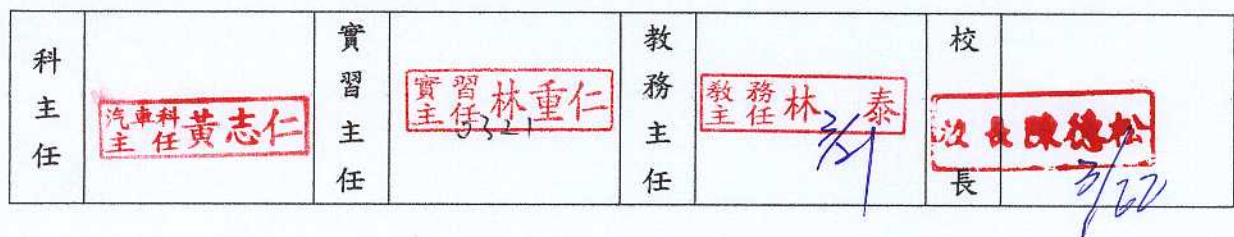 科主任
汽車科主任 黃志仁
實習主任
實習主任 林重仁
0321
教務主任
教務主任 林 泰
3/21
校長
校長 陳德松
3/22